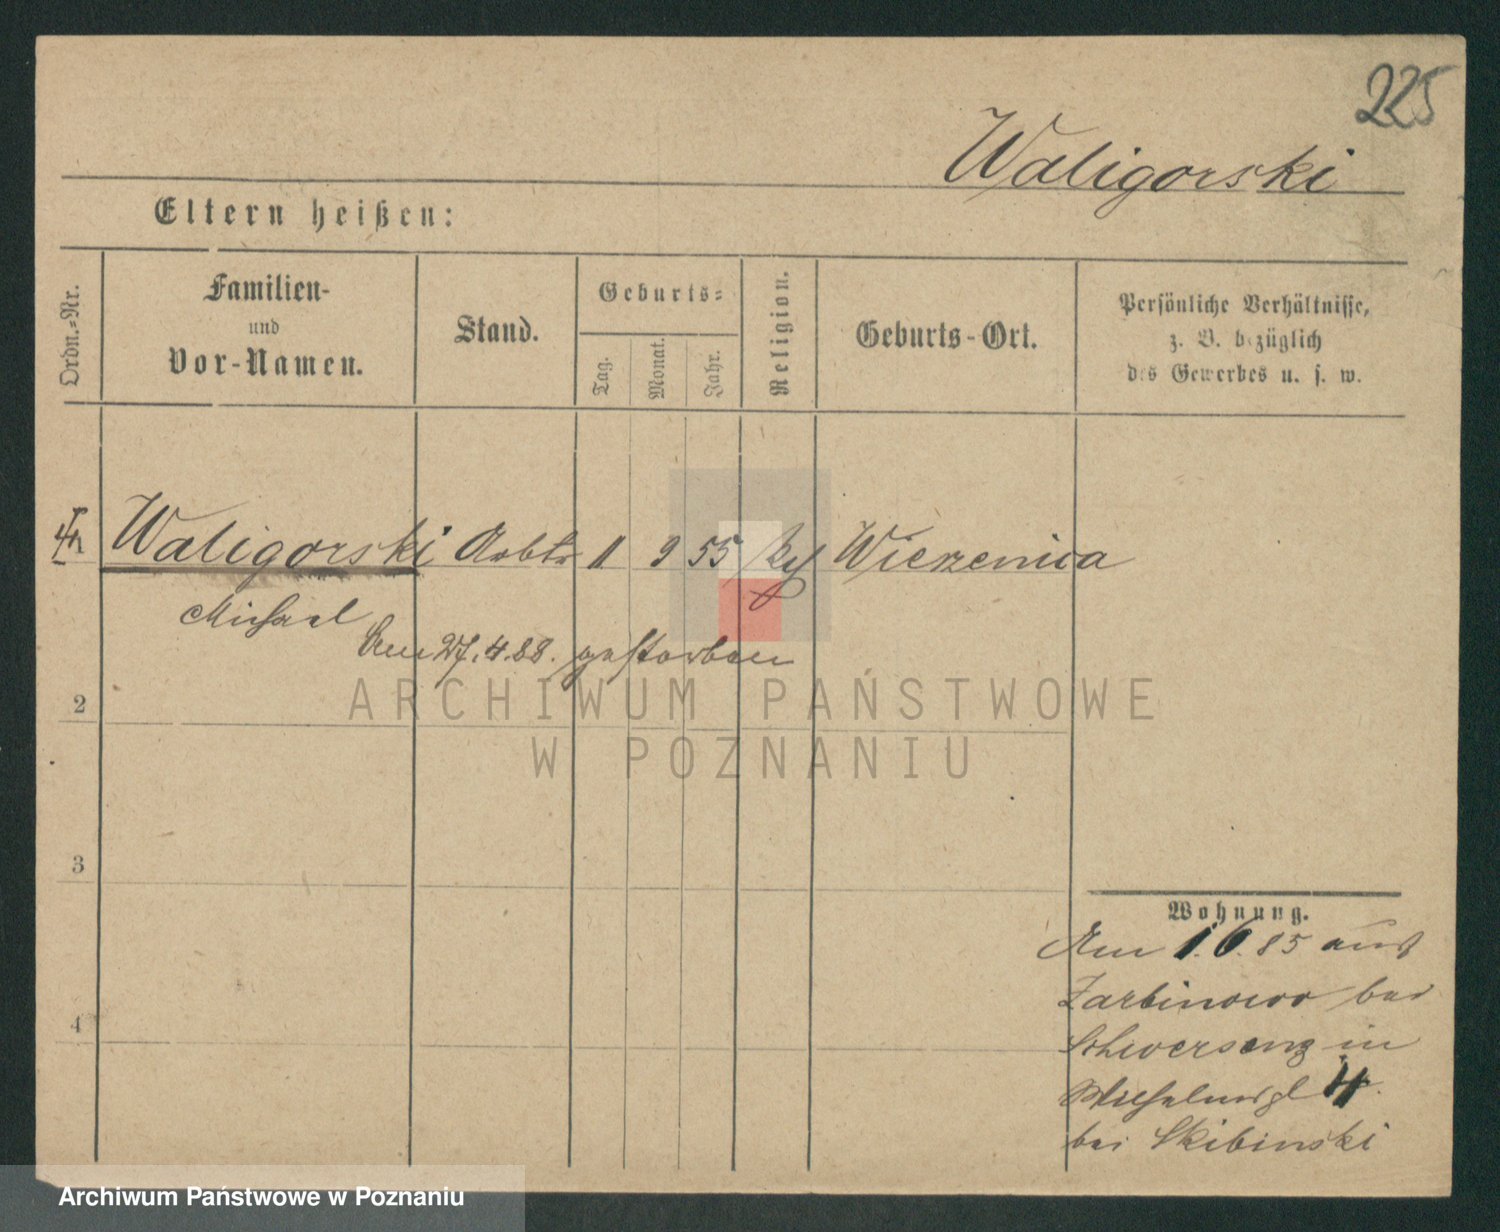 225
Waligorski
Eltern heißen:
Ordn.-Nr.
Familien-
und
Vor-Namen.
Stand.
Geburts=
Tag.
Monat.
Jahr.
Religion.
Geburts-Ort.
Persönliche Verhältnisse,
z. B. bezüglich
des Gewerbes u. s. w.
Waligorski Arbtr 11 9 55 Wierzenica
Michael
Am 27.4.88. gestorben
2
3
4
Wohnung.
Am 1.6.85 aus
bei
Schwersenz in
4.
bei Skibinski
ARCHIWUM PAŃSTWOWE
W POZNANIU
Archiwum Państwowe w Poznaniu